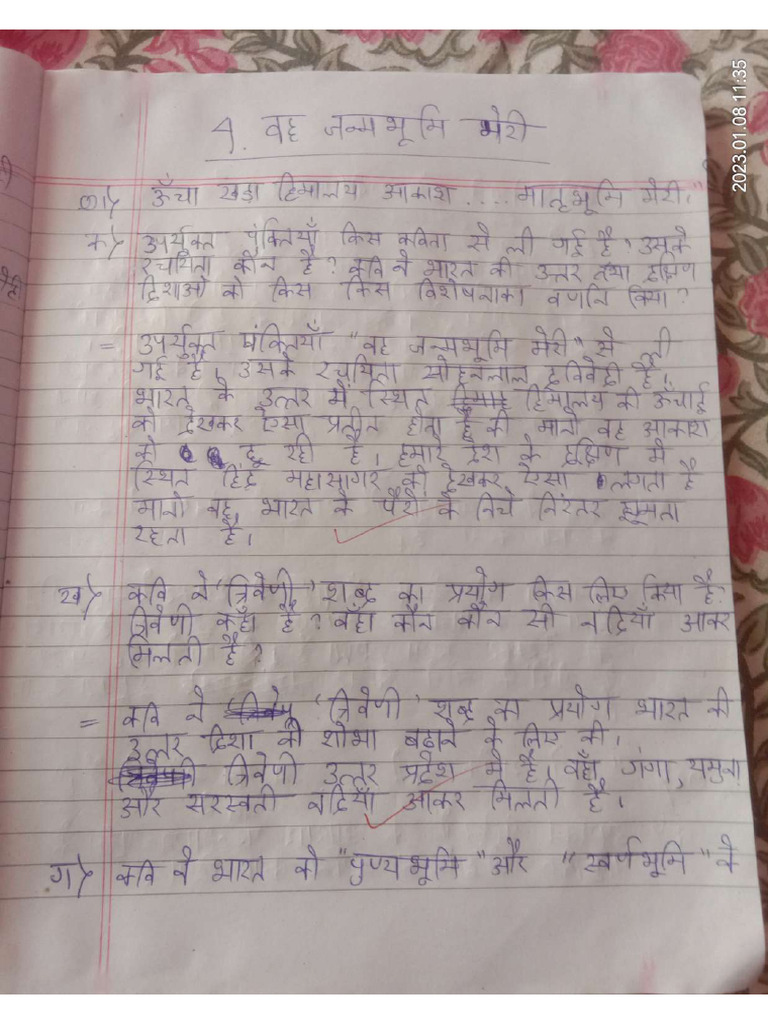 2023.01.08 11:35
4. वह जन्मभूमि मेरी
ऊँचा खड़ा हिमालय आकाश .... मातृभूमि मेरी।
क) उपर्युक्त पंक्तियाँ किस कविता से ली गई है, उसके
रचयिता कौन है? कवि ने भारत की उत्तर तथा दक्षिण
दिशाओं को किस किस विशेषताका वर्णन किया?
= उपर्युक्त पंक्तियाँ "वह जन्मभूमि मेरी" से ली
गई है। उसके रचयिता सोहनलाल द्विवेदी है।
भारत के उत्तर में स्थित हिमालय की ऊँचाई
को देखकर ऐसा प्रतीत होता है की मानो वह आकाश
को छू रही है। हमारे देश के दक्षिण में
स्थित हिंद महासागर को देखकर ऐसा लगता है
मानो वह भारत के पैरों के निचे निरंतर झूमता
रहता है।
ख) कवि ने 'त्रिवेणी' शब्द का प्रयोग किस लिए किया है?
त्रिवेणी कहाँ है? वहाँ कौन कौन सी नदियाँ आकर
मिलती है?
= कवि ने 'त्रिवेणी' शब्द का प्रयोग भारत की
उत्तर दिशा की शोभा बढ़ाने के लिए की।
त्रिवेणी उत्तर प्रदेश में है। वहाँ गंगा, यमुना
और सरस्वती नदियाँ आकर मिलती है।
ग) कवि ने भारत को "पुण्यभूमि" और "स्वर्णभूमि" के